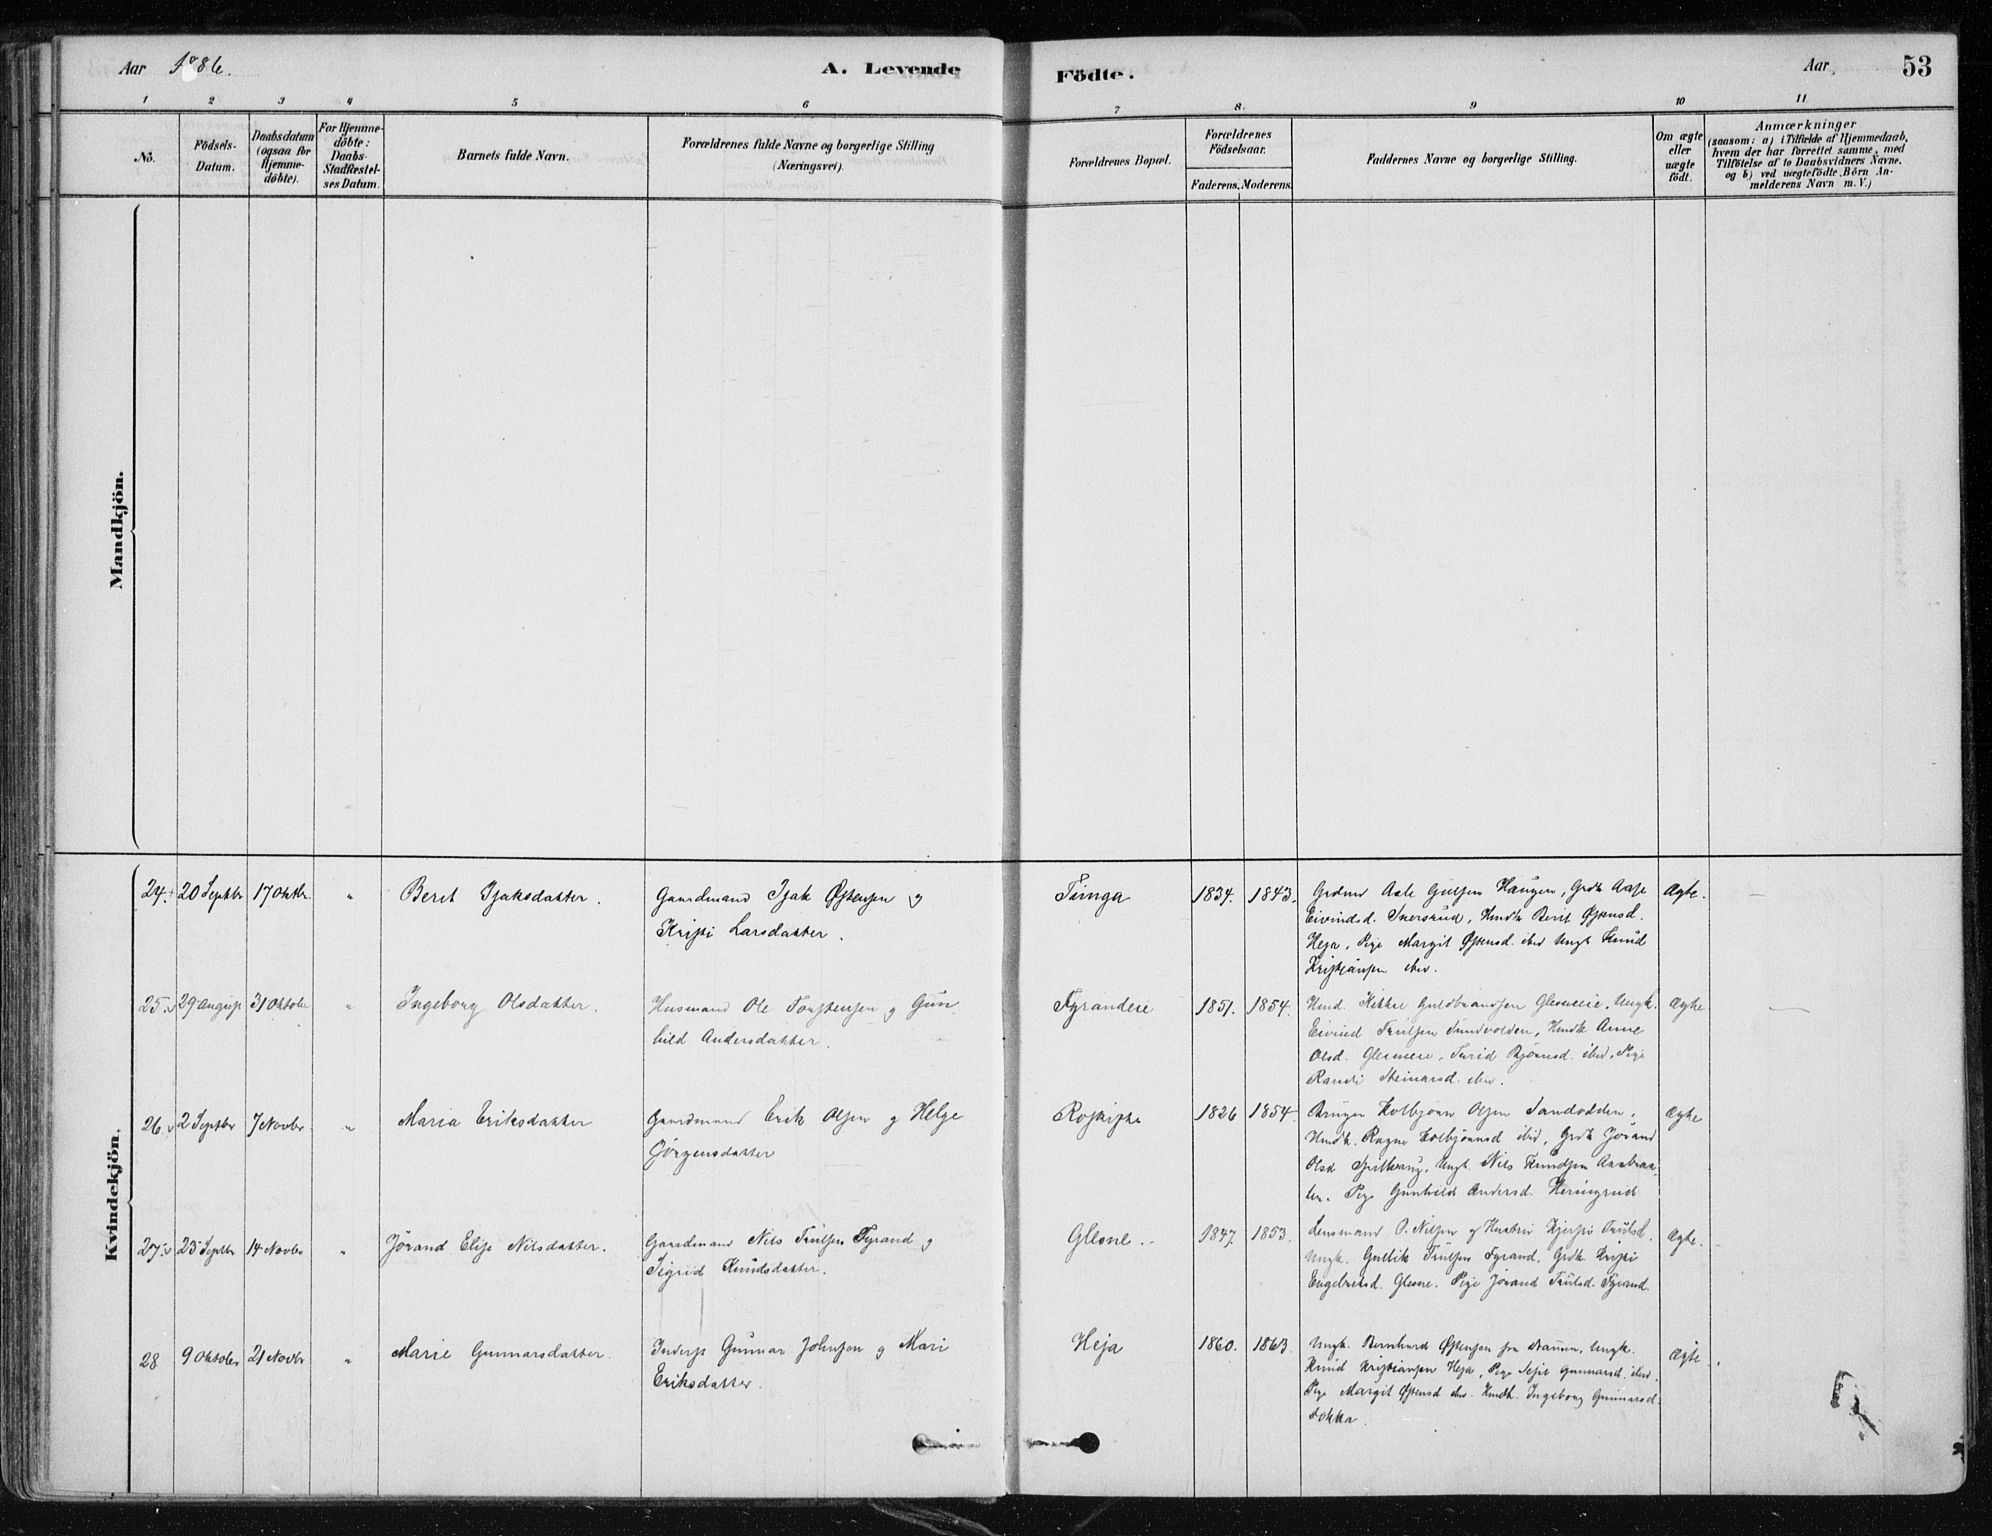 Aar 1886.
A. Levende
Födte.
Aar
53
1 2 3 4 5 6 7 8. 9 10 11
No.
Födsels-Datum.
Daabsdatum (ogsaa for Hjemme-döbte).
For Hjemme-döbte: Daabs-Stadfæstel-ses Datum.
Barnets fulde Navn.
Forældrenes fulde Navne og borgerlige Stilling (Næringsvei).
Forældrenes Bopæl.
Forældrenes Födselsaar.
Faderens. Moderens.
Faddernes Navne og borgerlige Stilling.
Om ægte eller uægte födt.
Anmærkninger
(saasom: a) i Tilfælde af Hjemmedaab,
hvem der har forrettet samme, med
Tilföielse af to Daabsvidners Navne.
og b) ved uægtefödte Börn An-
melderens Navn m. V.)
Mandkjön.
Kvindekjön.
24. 20 Septbr 17 Oktbr. " Berit Isaksdatter. Gaardmand Isak Østensen og
Kristi Larsdatter.
1834. 1843. Aase
Eivindsd. Berit Østensd.
Heja, Pige Margit Østensd. ibid Ungk Knud
Kristiansen ibid.
Ægte.
25. 29 August 31 Oktober " Ingeborg Olsdatter. Husmand Ole Torstensen og Gun
hild Andersdatter.
Tyrandeie 1851. 1854. Guldbrandsen Glesneeie, Ungk.
Eivind Trulsen Anne
Olsd. Glesneeie, Turid Bjørnsd. ibid, Pige
Randi Steinarsd. ibid.
Ægte
26. 2 Septbr 7 Novbr " Maria Eriksdatter Gaardmand Erik Olsen og Helge
Jörgensdatter
1826 1854 Bruger Kolbjörn Olsen Sandodden,
Ragne Kolbjörnsd ibid, Jörand
Olsd Ungk. Nils Knudsen
Pige Gunhild Andersd.
Ægte
27. 25 Septbr 14 Novbr " Jörand Elise Nilsdatter. Gaardmand Nils Trulsen Tyrand og
Sigrid Knudsdatter.
Glesne. 1847. 1853. Lensmand O. Nilsen og Hustru Kjersti Trulsd.
Ungk. Gulbik Trulsen Tyrand, Kristi
Engebretsd. Glesne. Pige Jörand Trulsd. Tyrand.
Ægte.
28 9 Oktober 21 Novbr " Marie Gunnarsdatter. Inderst Gunnar Johnsen og Mari
Eriksdatter.
Heja 1860. 1863. Ungk. Bernhard Østensen fra Ungk.
Knud Kristiansen Heja, Pige Gunnarsd. ibid,
Pige Margit Østensd ibid. Ingeborg Gunnarsd.
Dokka.
Ægte